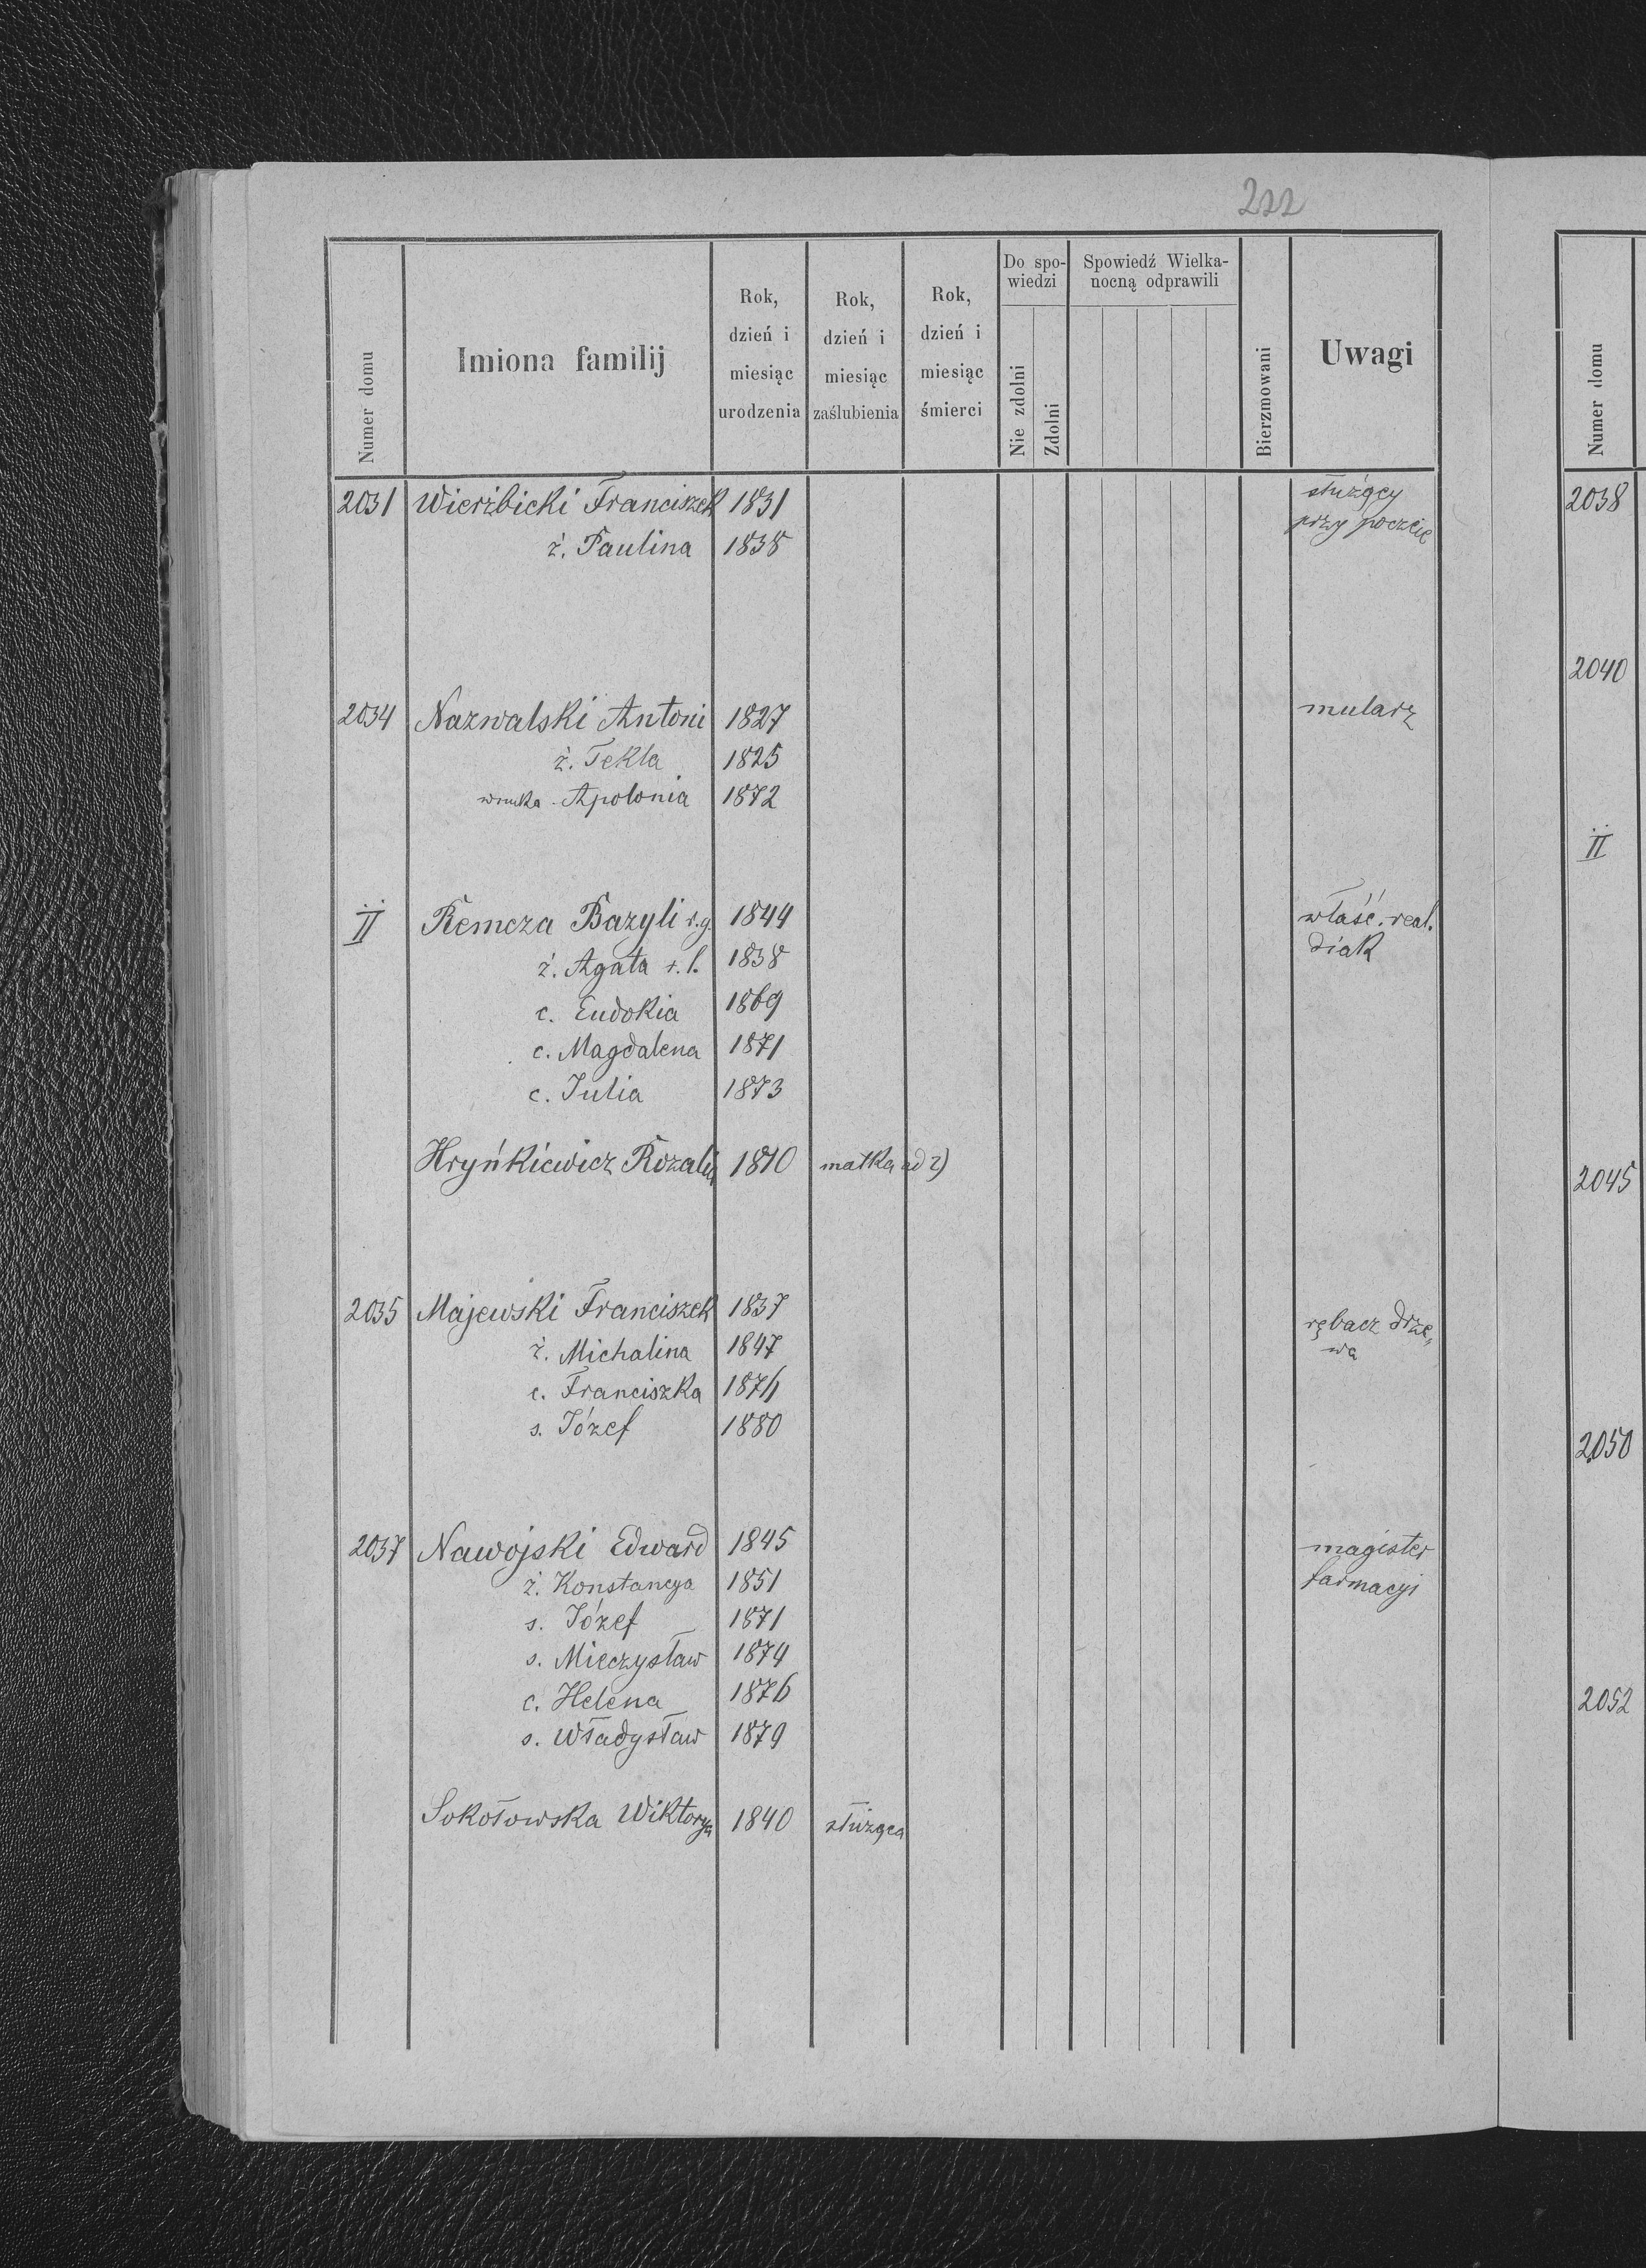 222
Numer domu
Imiona familij
Rok, dzień i miesiąc urodzenia
Rok, dzień i miesiąc zaślubienia
Rok, dzień i miesiąc śmierci
Do spowiedzi
Nie zdolni
Zdolni
Spowiedź Wielkanocną odprawili
Bierzmowani
Uwagi
Numer domu
2031 Wierżbicki Franciszek 1831 służący
przy poczcie
ż. Paulina 1838
2034 Nazwalski Antoni 1827 mularz
ż. Tekla 1825
wnuka - Apolonia 1872
II Remcza Bazyli r.g. 1844 właść. real.
diak
ż. Agata r.l. 1838
c. Eudokia 1869
c. Magdalena 1871
c. Julia 1873
Hryńkiewicz Rozalia 1810 matka ad 2)
2035 Majewski Franciszek 1837 rębacz drze„
wa
ż. Michalina 1847
c. Franciszka 1876
s. Józef 1880
2037 Nawojski Edward 1845 magister
farmacyi
ż. Konstancya 1851
s. Józef 1871
s. Mieczysław 1874
c. Helena 1876
s. Władysław 1879
Sokołowska Wiktorya 1840 służąca
2038
2040
II
2045
2050
2052